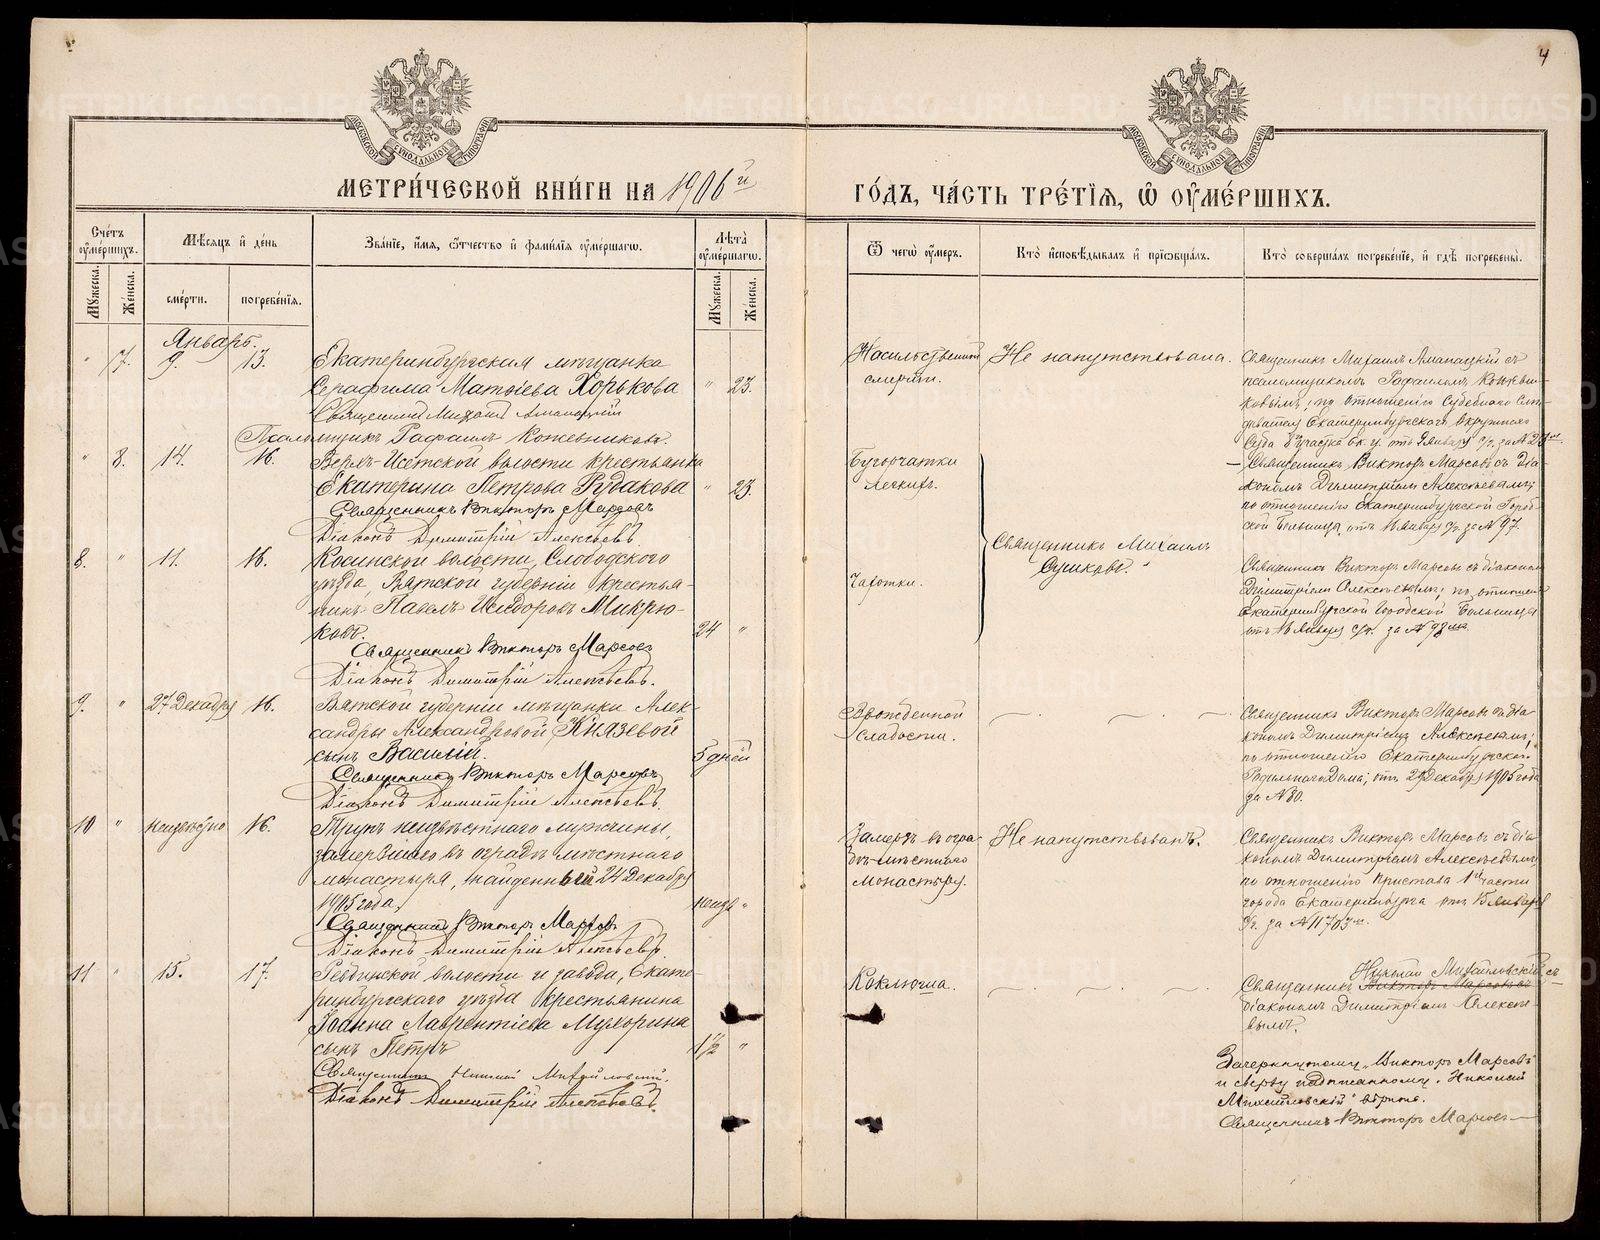 4
МЕТРИ́ЧЕСКОЙ КНИ́ГИ НА 1906й
ГО́ДЪ, ЧА́СТЬ ТРЕ́ТЇѦ, Ѡ҆ ОУ҆МЕ́РШИХЪ.
Сче́тъ оу҆ме́ршихъ.
Мѣ́сяцъ и҆ де́нь
Зва́нїе, и҆́мя, ѻ҆́тчество и҆ фами́лїя оу҆ме́ршагѡ.
Лѣ́та оу҆ме́ршагѡ.
Ѿ чегѡ̀ оу҆́меръ.
Кто̀ и҆сповѣ́дывалъ и҆ прїѡбща́лъ.
Кто̀ соверша́лъ погребе́нїе, и҆ гдѣ̀ погребены̀.
Мꙋ́жеска.
Же́нска.
сме́рти.
погребе́нїя.
Мꙋ́жеска.
Же́нска.
Январь.
" 7. 9. 13. Екатеринбургская мѣщанка
Серафима Матѳіева Хорькова " 23.
Священникъ Михаилъ
Псаломщикъ Рафаилъ Кожевниковъ.
Насильственной
смерти.
Не напутствована.
Священникъ Михаилъ съ
псаломщикомъ Рафаиломъ Кожевни-
ковымъ; по отношенію Судебнаго Слѣ-
дователя Екатеринбургскаго Окружнаго
" 8. 14. 16. Верхъ-Исетской волости крестьянка
Екатерина Петрова Рудакова " 23.
Священникъ Викторъ Марсовъ
Діаконъ Димитрій Алексѣевъ.
Бугорчатки
легкихъ.
Священникъ Викторъ Марсовъ съ діа-
кономъ Димитріемъ Алексѣевымъ;
по отношенію Екатеринбургской Город-
ской Больницы, отъ 16 Января с/г. за № 97.
8. " 11. 16. Косинской волости, Слободского
уѣзда, Вятской губерніи крестья-
нинъ Павелъ Исидоровъ Микрю-
ковъ. 24 "
Священникъ Викторъ Марсовъ
Діаконъ Димитрій Алексѣевъ.
Чахотки.
Священникъ Михаилъ
Сушковъ.
Священникъ Викторъ Марсовъ съ діакономъ
Димитріемъ Алексѣевымъ; по отношенію
Екатеринбургской Городской Больницы
отъ 16 Января с/г. за № 98
9. " 27 Декабря 16. Вятской губерніи мѣщанки Алек-
сандры Александровой Князевой
сынъ Василій. 5 дней
Священникъ Викторъ Марсовъ
Діаконъ Димитрій Алексѣевъ.
Врожденной
слабости.
Священникъ Викторъ Марсовъ съ діа-
кономъ Димитріемъ Алексѣевымъ;
по отношенію Екатеринбургскаго
Родильнаго Дома; отъ 29 Декабря 1905 года
за № 80.
10 " неизвѣстно 16. Трупъ неизвѣстнаго мужчины,
замерзшаго въ оградѣ мѣстнаго
монастыря, найденный 24 Декабря
1905 года. неизв. "
Священникъ Викторъ Марсовъ
Діаконъ Димитрій Алексѣевъ.
Замерзъ въ огра-
дѣ мѣстнаго
монастыря.
Не напутствованъ.
Священникъ Викторъ Марсовъ съ діа-
кономъ Димитріемъ Алексѣевымъ;
по отношенію Пристава 1й части
города Екатеринбурга отъ 15 Января
с/г. за № 11703
11 " 15. 17. Ревдинской волости и завода, Екате-
ринбургскаго уѣзда крестьянина
Іоанна Лаврентіева Мухорина
сынъ Петръ 1½ "
Священникъ Николай Михайловскій.
Діаконъ Димитрій Алексѣевъ.
Коклюша.
Николай Михайловскій съ
Священникъ Викторъ Марсовъ съ
діакономъ Димитріемъ Алексѣе-
вымъ.
Зачеркнутому „Викторъ Марсовъ"
и сверху надписанному „Николай
Михайловскій" вѣрить.
Священникъ Викторъ Марсовъ
METRIKI.GASO-URAL.RU